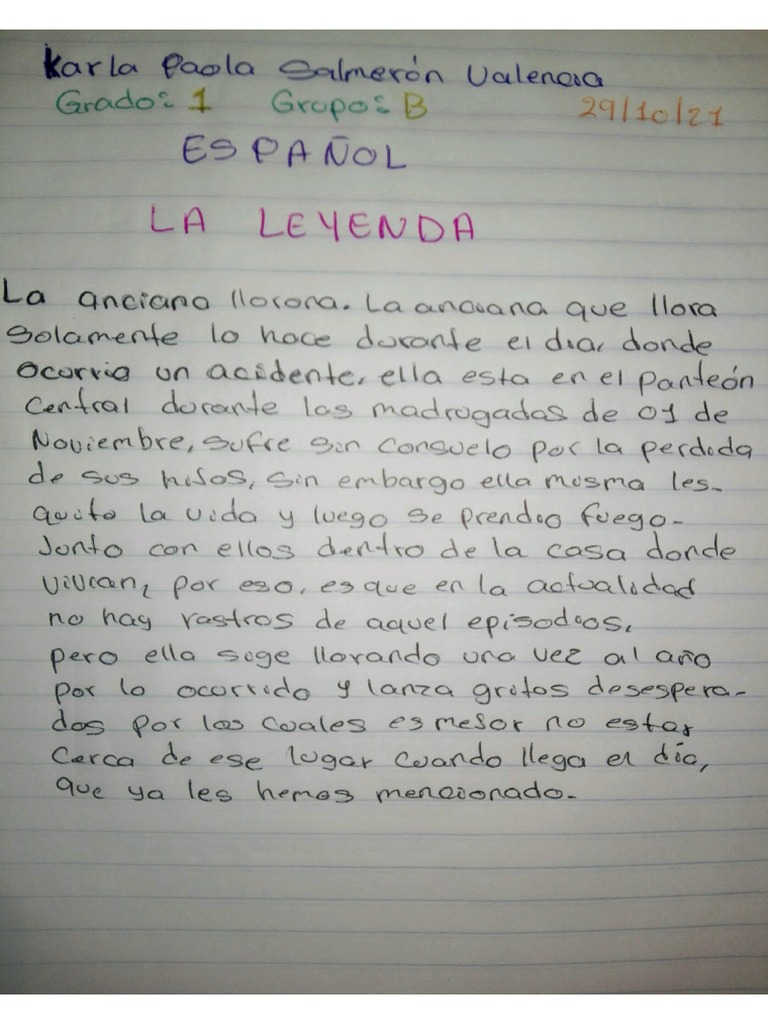 Karla Paola Salmerón Valencia
Grado: 1 Grupo: B 29/10/21
ESPAÑOL
LA LEYENDA
La anciana llorona. La anciana que llora
solamente lo hace durante el dia, donde
ocurrio un acidente, ella esta en el panteón
Central durante las madrugadas de 01 de
Noviembre, sufre sin consuelo por la perdida
de sus hijos, sin embargo ella misma les-
quito la vida y luego se prendio fuego-
Junto con ellos dentro de la casa donde
vivian, por eso, es que en la actualidad
no hay rastros de aquel episodios,
pero ella sige llorando una vez al año
por lo ocurrido y lanza gritos desespera-
dos por los cuales es mejor no estar
Cerca de ese lugar cuando llega el día,
que ya les hemos mencionado.